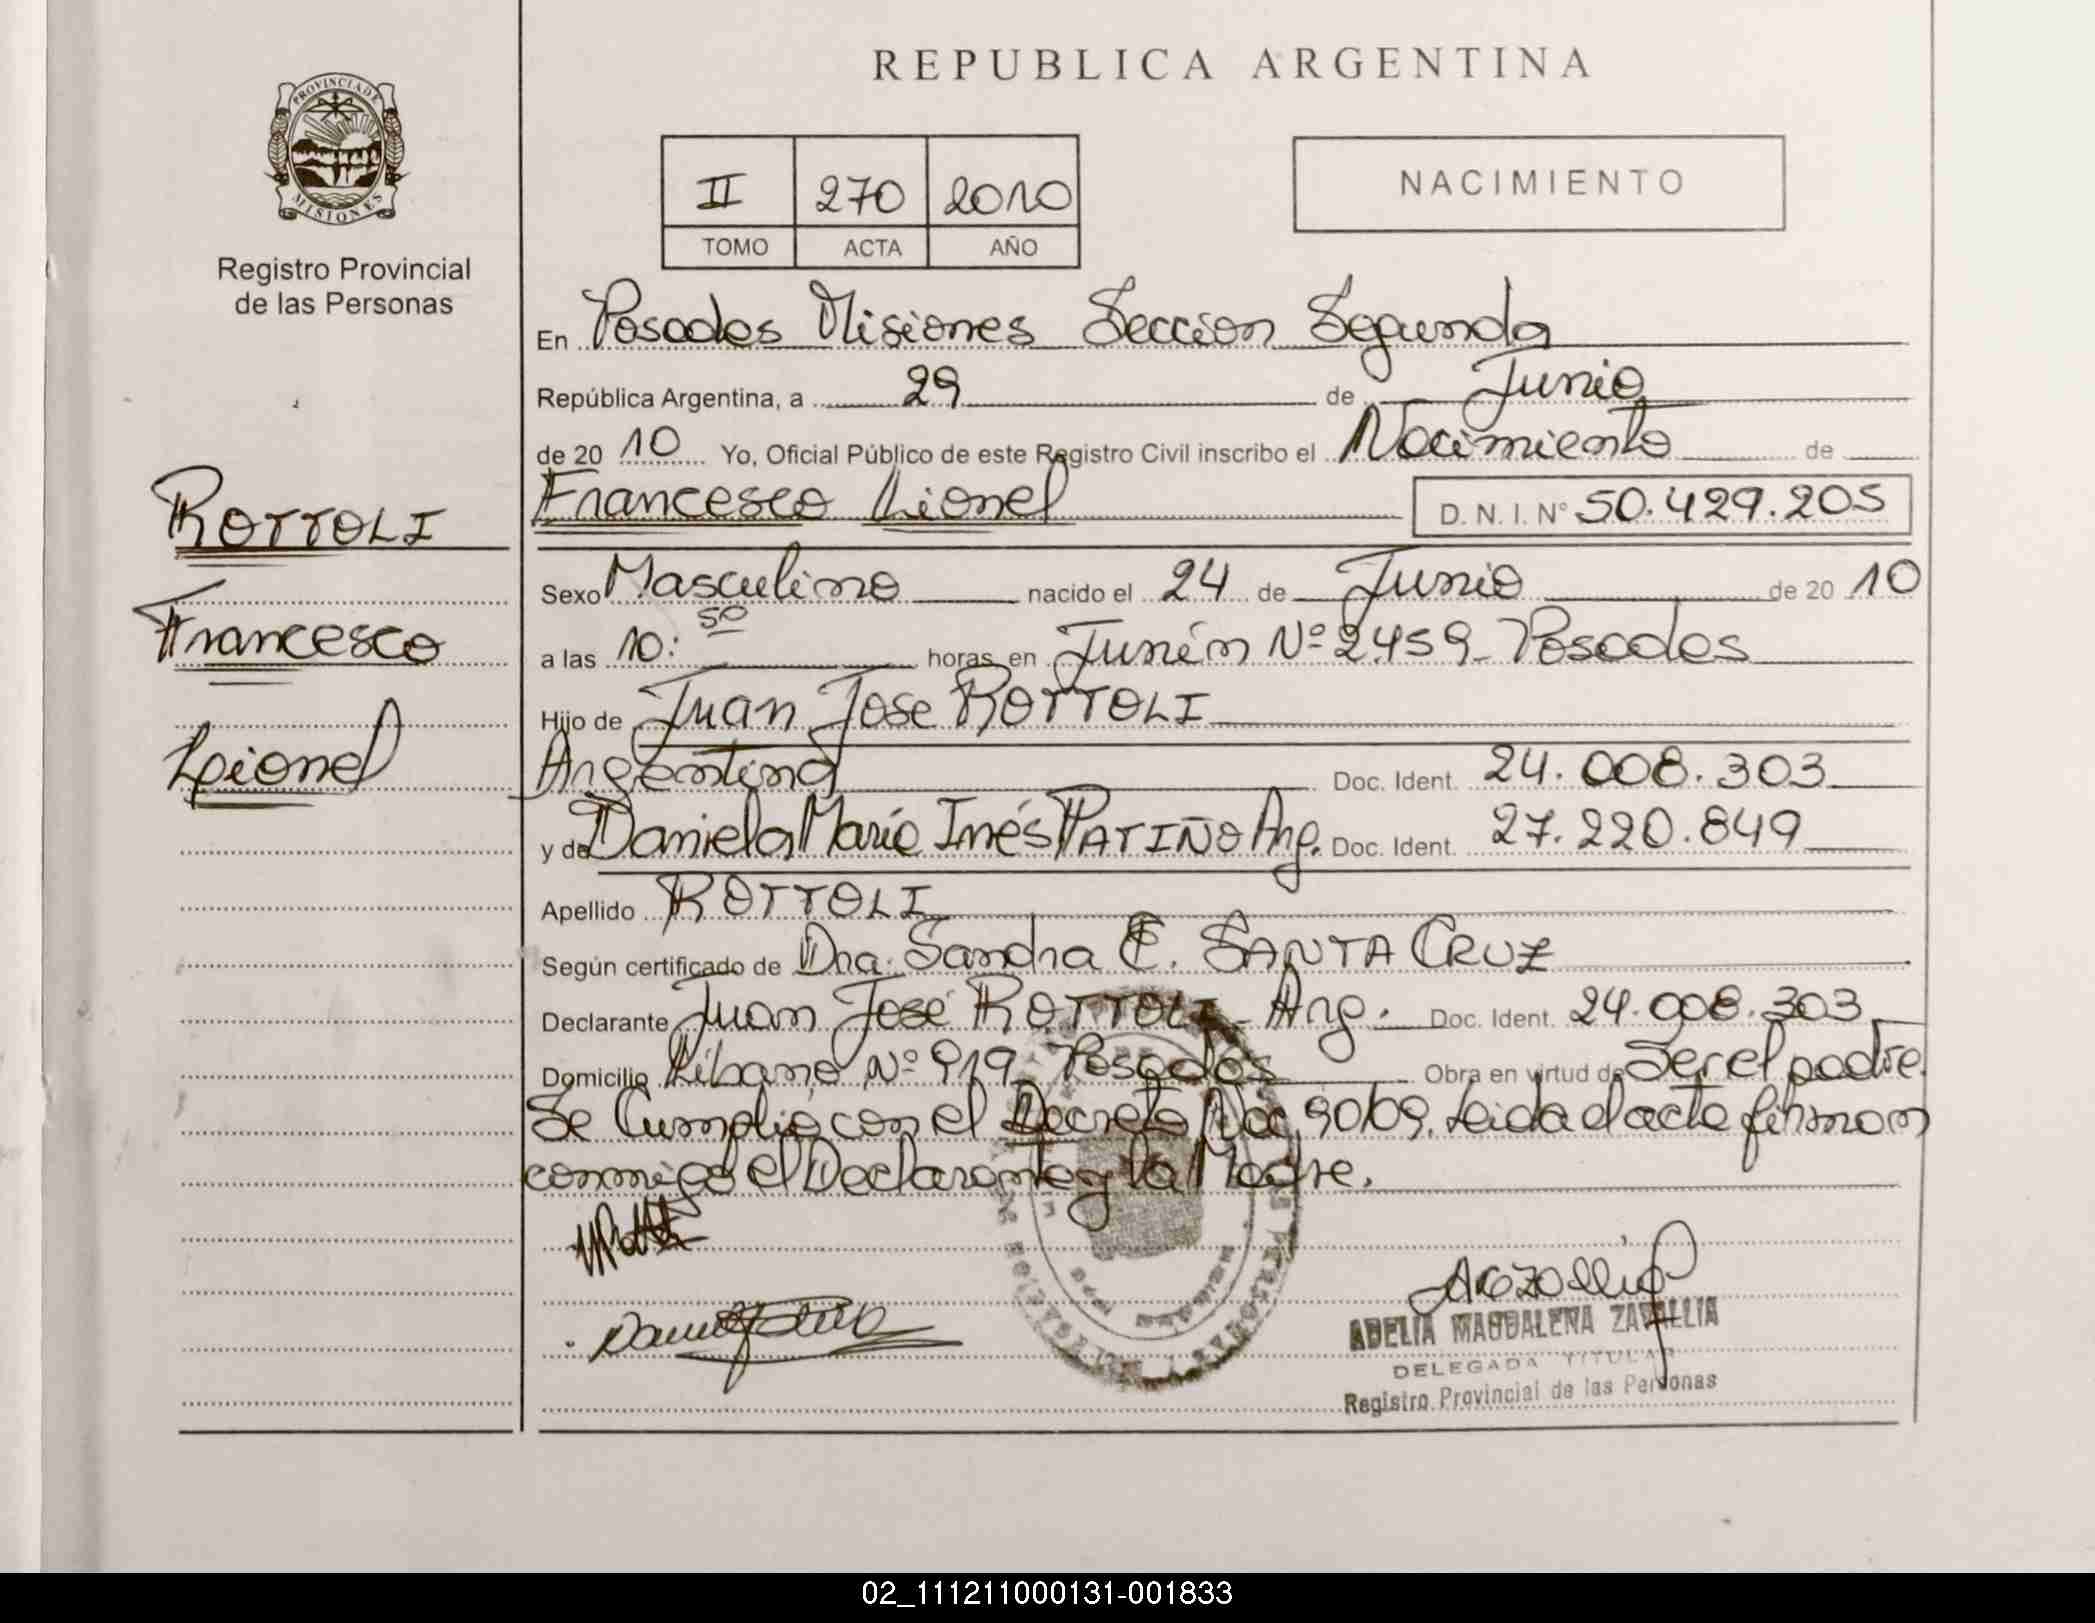 REPUBLICA ARGENTINA
PROVINCIA DE
MISIONES
Registro Provincial
de las Personas
II 270 2010
TOMO ACTA AÑO
NACIMIENTO
En Posadas Misiones Sección Segunda
República Argentina, a 29 de Junio
de 20 10 Yo, Oficial Público de este Registro Civil inscribo el Nacimiento de
Francesco Lionel D. N. I. Nº 50.429.205
ROTTOLI
Francesco
Lionel
Sexo Masculino nacido el 24 de Junio de 20 10
a las 10:50 horas en Junín Nº 2459 Posadas
Hijo de Juan Jose ROTTOLI
Argentino Doc. Ident. 24.008.303
y de Daniela María Inés PATIÑO Arg. Doc. Ident. 27.220.849
Apellido ROTTOLI
Según certificado de Dra. Sandra E. SANTA CRUZ
Declarante Juan José ROTTOLI - Arg. Doc. Ident. 24.008.303
Domicilio Líbano Nº 919 Posadas Obra en virtud de Ser el padre.
Se Cumplió con el Decreto Nac. 90/09. Leida el acta firman
conmigo el Declarante y la Madre.
ADELIA MAGDALENA ZARALLIA
DELEGADA TITULAR
Registro Provincial de las Personas
02_111211000131-001833